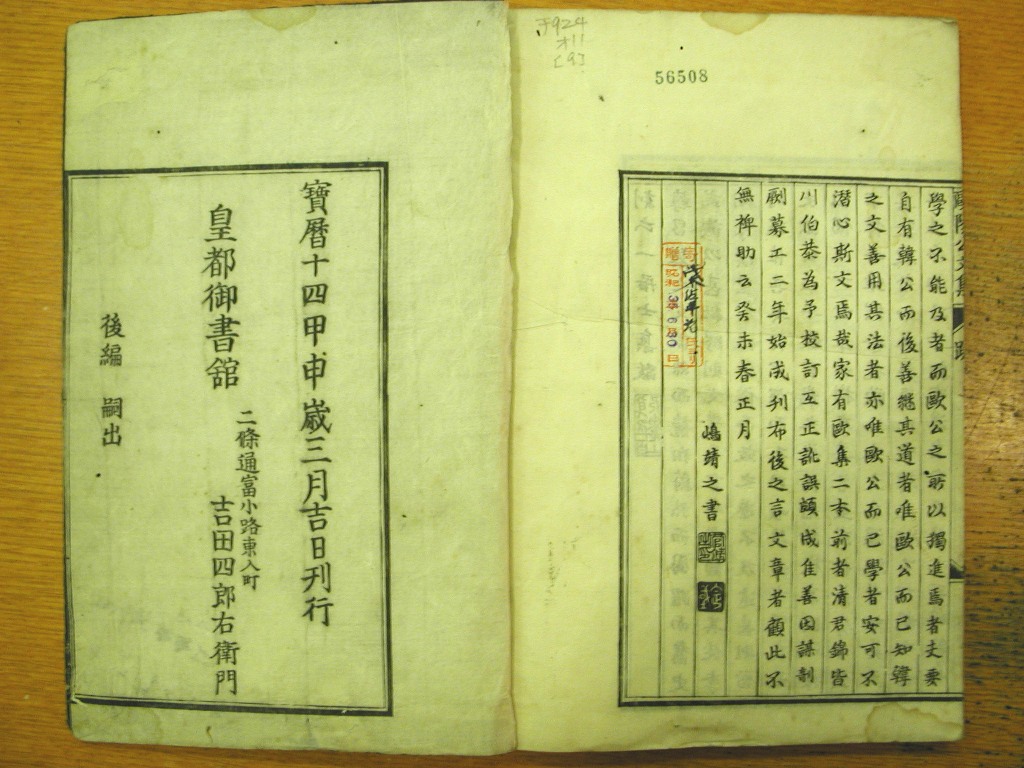 于924
オ11
[9]
56508
學之不能及者而歐公之所以獨進焉者夫要
自有韓公而後善繼其道者唯歐公而已知韓
之文善用其法者亦唯歐公而已學者安可不
潛心斯文焉哉家有歐集二本前者清君錦皆
川伯恭為予校訂互正訛誤頗成佳善因謀剞
劂募工二年始成刋布後之言文章者顧此不
無裨助云癸未春正月
嶋靖之書
昭和
3年6月30日
寶曆十四甲申歲三月吉日刋行
皇都御書舘
二條通富小路東入町
吉田四郎右衛門
後編 嗣出